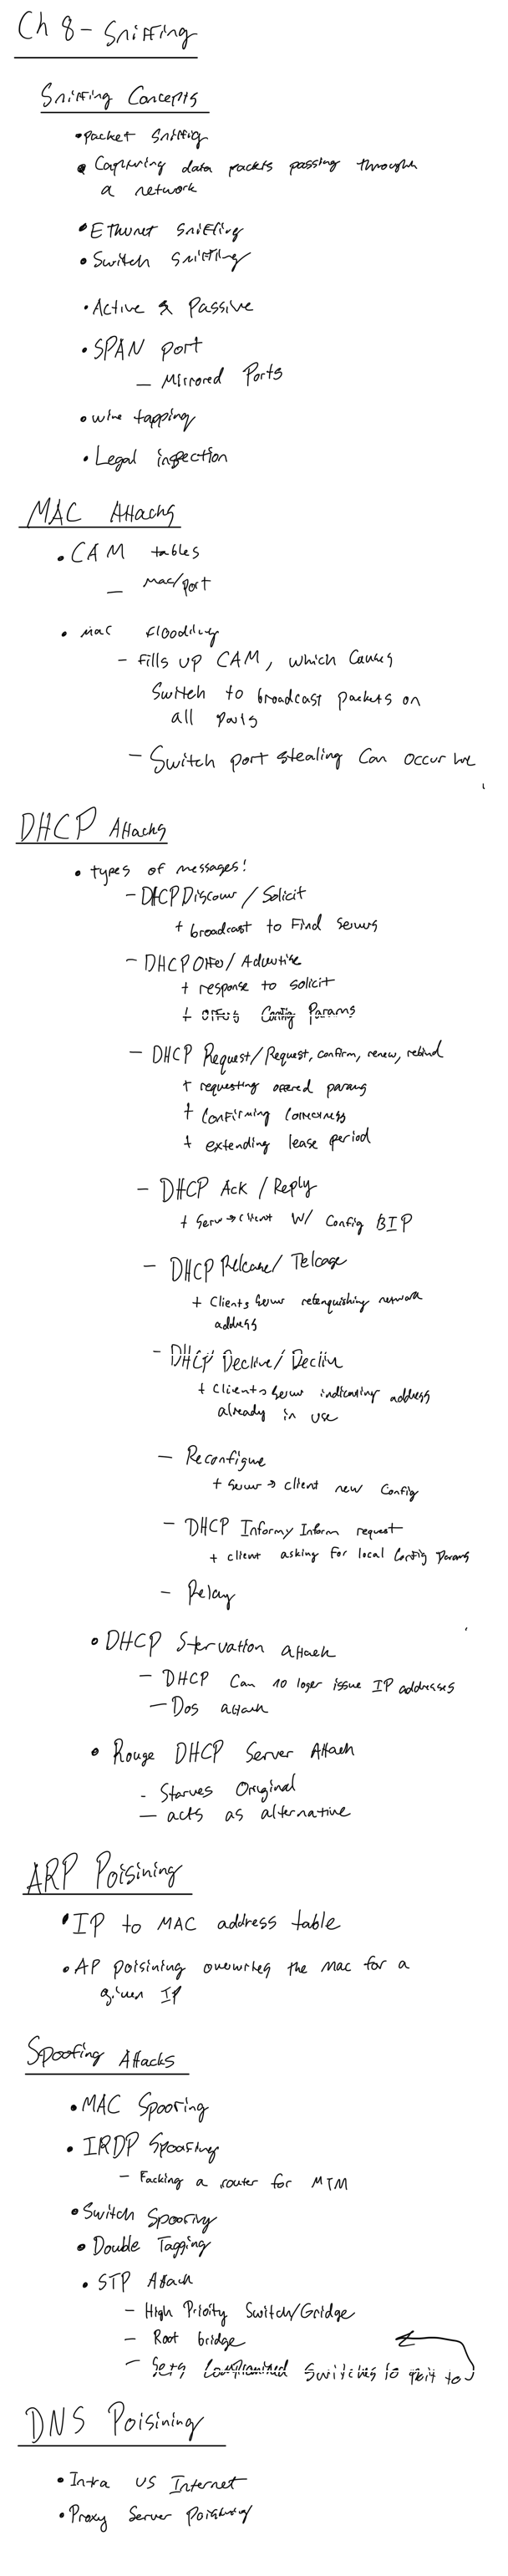 Ch 8 - Sniffing
Sniffing Concepts
• Packet Sniffig
• Capturing data packets passing through
a network
• Ethernet Sniffing
• Switch Sniffing
• Active & Passive
• SPAN port
— Mirrored Ports
• wire tapping
• Legal inspection
MAC Attacks
• CAM tables
— Mac/port
• mac flooding
- fills up CAM, which causes
Switch to broadcast packets on
all Ports
- Switch port stealing Can occur here
DHCP Attacks
• types of messages!
- DHCP Discover / Solicit
+ broadcast to Find Servers
- DHCP Offer / Advertise
+ response to solicit
+ offers Config Params
- DHCP Request/Request, confirm, renew, rebind
+ requesting offered params
+ Confirming Correctness
+ extending lease period
- DHCP Ack / Reply
+ Server → Client W/ Config & IP
- DHCP Release/
+ Client → Server relenquishing network
address
- DHCP Decline/ Decline
+ Client → Server indicating address
already in use
- Reconfigure
+ Server → client new Config
- DHCP Inform/ Inform request
+ client asking for local Config Params
- Relay
• DHCP Starvation attack
- DHCP Can no loger issue IP addresses
- Dos attack
• Rouge DHCP Server Attack
- Starves Original
— acts as alternative
ARP Poisining
• IP to MAC address table
• AP poisining overwrites the mac for a
given IP
Spoofing Attacks
• MAC Spoofing
• IRDP Spoofing
- Facking a router for MTM
• Switch Spoofing
• Double Tagging
• STP Attack
- High Prioity Switch/Bridge
- Root bridge
- Sets Compromised Switches to to
DNS Poisining
• Intra vs Internet
• Proxy Server Poisining